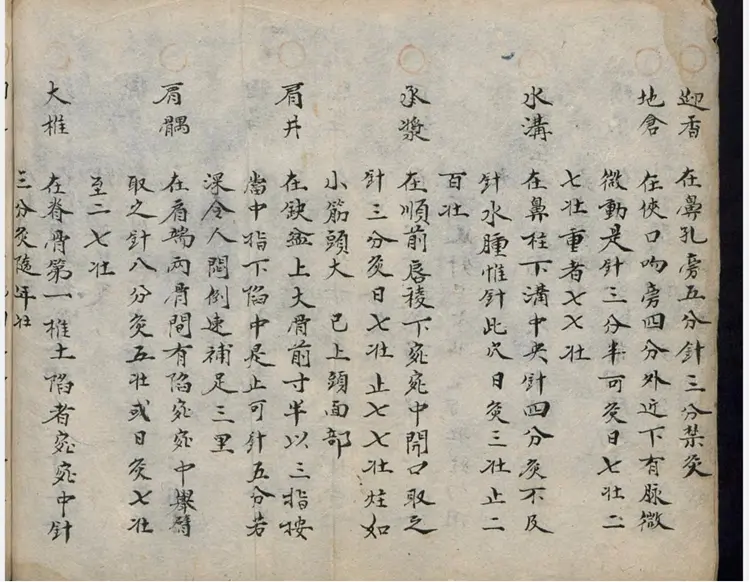 迎香 在鼻孔旁五分針三分禁灸
地倉 在俠口吻旁四分外近下有脉微
微動是針三分半可灸日七壯二
七壯重者七七壯
水溝 在鼻柱下溝中央針四分灸不及
針水腫惟針此穴日灸三壯止二
百壯
承漿 在順前唇稜下宛宛中開口取之
針三分灸日七壯止七七壯炷如
小筋頭大 已上頭面部
肩井 在缺盆上大骨前寸半以三指按
當中指下陷中是止可針五分若
深令人悶倒速補足三里
肩髃 在肩端兩骨間有陷宛宛中舉臂
取之針八分灸五壯或日灸七壯
至二七壯
大椎 在脊骨第一椎上陷者宛宛中針
三分灸隨年壯